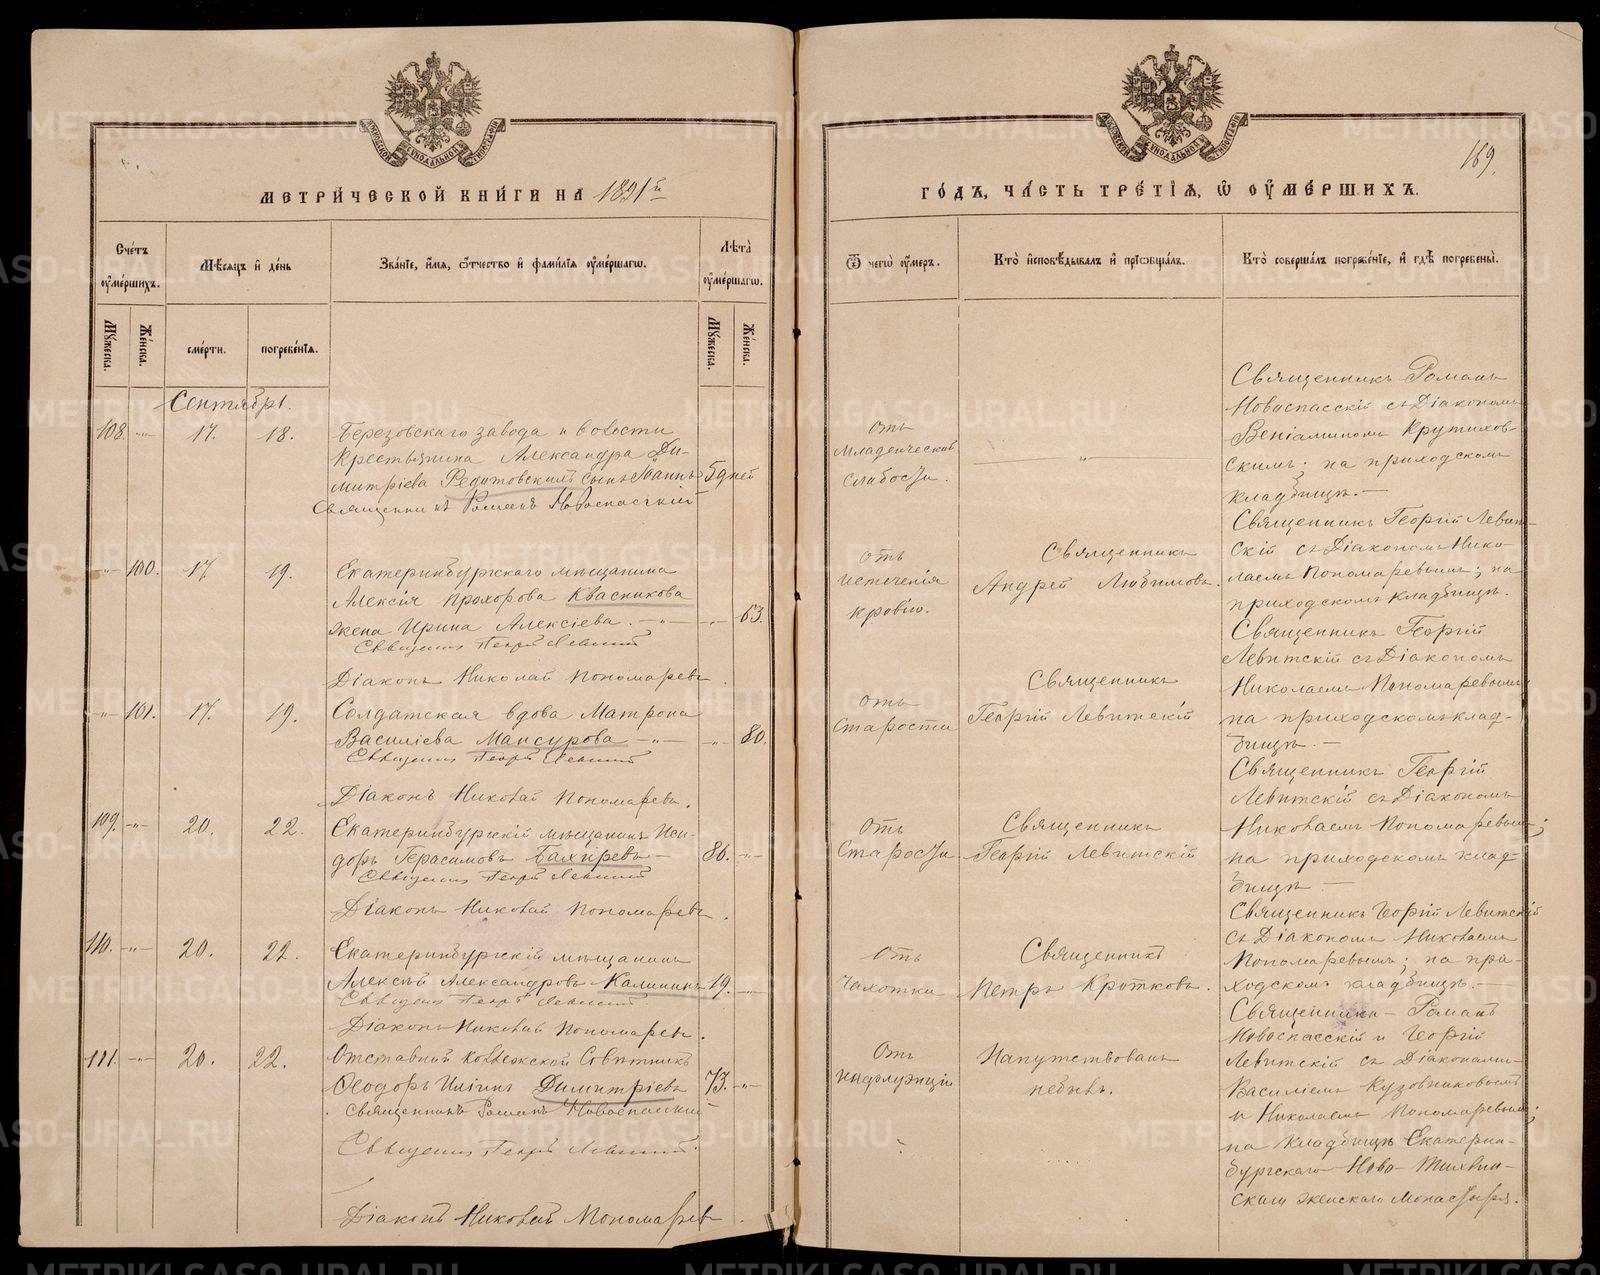 МЕТРИ́ЧЕСКОЙ КНИ́ГИ НА 1891й
ГО́ДЪ, ЧА́СТЬ ТРЕ́ТІѦ, Ѿ ОУ҆МЕ́РШИХЪ.
169.
Сче́тъ оу҆ме́ршихъ.
Мѣ́сяцъ и҆ де́нь
Зва́нїе, и҆́мѧ, ѻ҆́тчество и҆ фами́лїѧ оу҆ме́ршагѡ.
Лѣ́та оу҆ме́ршагѡ.
Ѿ чегѡ̀ оу҆́меръ.
Кто̀ и҆сповѣ́дывалъ и҆ прїѡбща́лъ.
Кто̀ соверша́лъ погребе́нїе, и҆ гдѣ̀ погребены̀.
Мꙋ́жеска.
Же́нска.
сме́рти.
погребе́нїѧ.
Мꙋ́жеска.
Же́нска.
Сентябрь.
108. -"- 17. 18.
Березовскаго завода и волости
крестьянина Александра Ди-
митріева Федотовскихъ сынъ Іоаннъ 5 дней
Священникъ Романъ Новоспасскій
Отъ
младенческой
слабости.
-"-
Священникъ Романъ
Новоспасскій съ Діакономъ
Веніаминомъ Крутихов-
скимъ; на приходскомъ
кладбищѣ.
-"- 100. 17. 19.
Екатеринбургскаго мѣщанина
Алексія Прохорова Квасникова
жена Ирина Алексіева. -"- -"- 63.
Священникъ Георгій Левитскій
Діаконъ Николай Пономаревъ.
Отъ
истеченія
кровію.
Священникъ
Андрей Любимовъ.
Священникъ Георгій Левит-
скій съ Діакономъ Нико-
лаемъ Пономаревымъ; на
приходскомъ кладбищѣ.
-"- 101. 17. 19.
Солдатская вдова Матрона
Василіева Мансурова -"- -"- 80.
Священникъ Георгій Левитскій
Діаконъ Николай Пономаревъ.
Отъ
старости
Священникъ
Георгій Левитскій
Священникъ Георгій
Левитскій съ Діакономъ
Николаемъ Пономаревымъ;
на приходскомъ клад-
бищѣ.
109. -"- 20. 22.
Екатеринбургскій мѣщанинъ Иси-
доръ Герасимовъ Бахіревъ 86. -"-
Священникъ Георгій Левитскій
Діаконъ Николай Пономаревъ.
Отъ
старости.
Священникъ
Георгій Левитскій
Священникъ Георгій
Левитскій съ Діакономъ
Николаемъ Пономаревымъ;
на приходскомъ клад-
бищѣ.
110. -"- 20. 22.
Екатеринбургскій мѣщанинъ
Алексѣй Александровъ Калининъ 19. -"-
Священникъ Георгій Левитскій
Діаконъ Николай Пономаревъ.
Отъ
чахотки
Священникъ
Петръ Кротковъ.
Священникъ Георгій Левитскій
съ Діакономъ Николаемъ
Пономаревымъ; на при-
ходскомъ кладбищѣ.
111. -"- 20. 22.
Отставной Коллежской Совѣтникъ
Ѳеодоръ Иліинъ Димитріевъ 73. -"-
Священникъ Романъ Новоспасскій
Священникъ Георгій Левитскій.
Діаконъ Николай Пономаревъ.
Отъ
инфлуэнціи
Напутствованъ
небылъ.
Священники Романъ
Новоспасскій и Георгій
Левитскій съ Діаконами
Василіемъ Кузовниковымъ
и Николаемъ Пономаревымъ;
на кладбищѣ Екатерин-
бургскаго Ново-Тихвин-
скаго женскаго монастыря.
METRIKI.GASO-URAL.RU